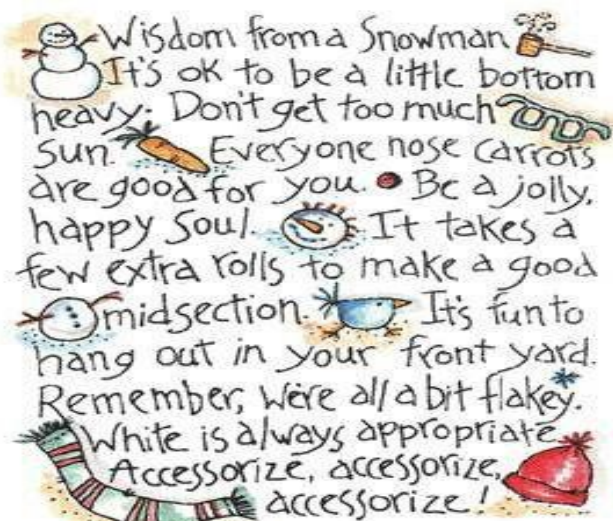 Wisdom from a Snowman
It's ok to be a little bottom
heavy. Don't get too much
Sun. Everyone nose carrots
are good for you. Be a jolly,
happy Soul. It takes a
few extra rolls to make a good
midsection. It's fun to
hang out in your front yard.
Remember, we're all a bit flakey.
White is always appropriate
Accessorize, accessorize,
accessorize!